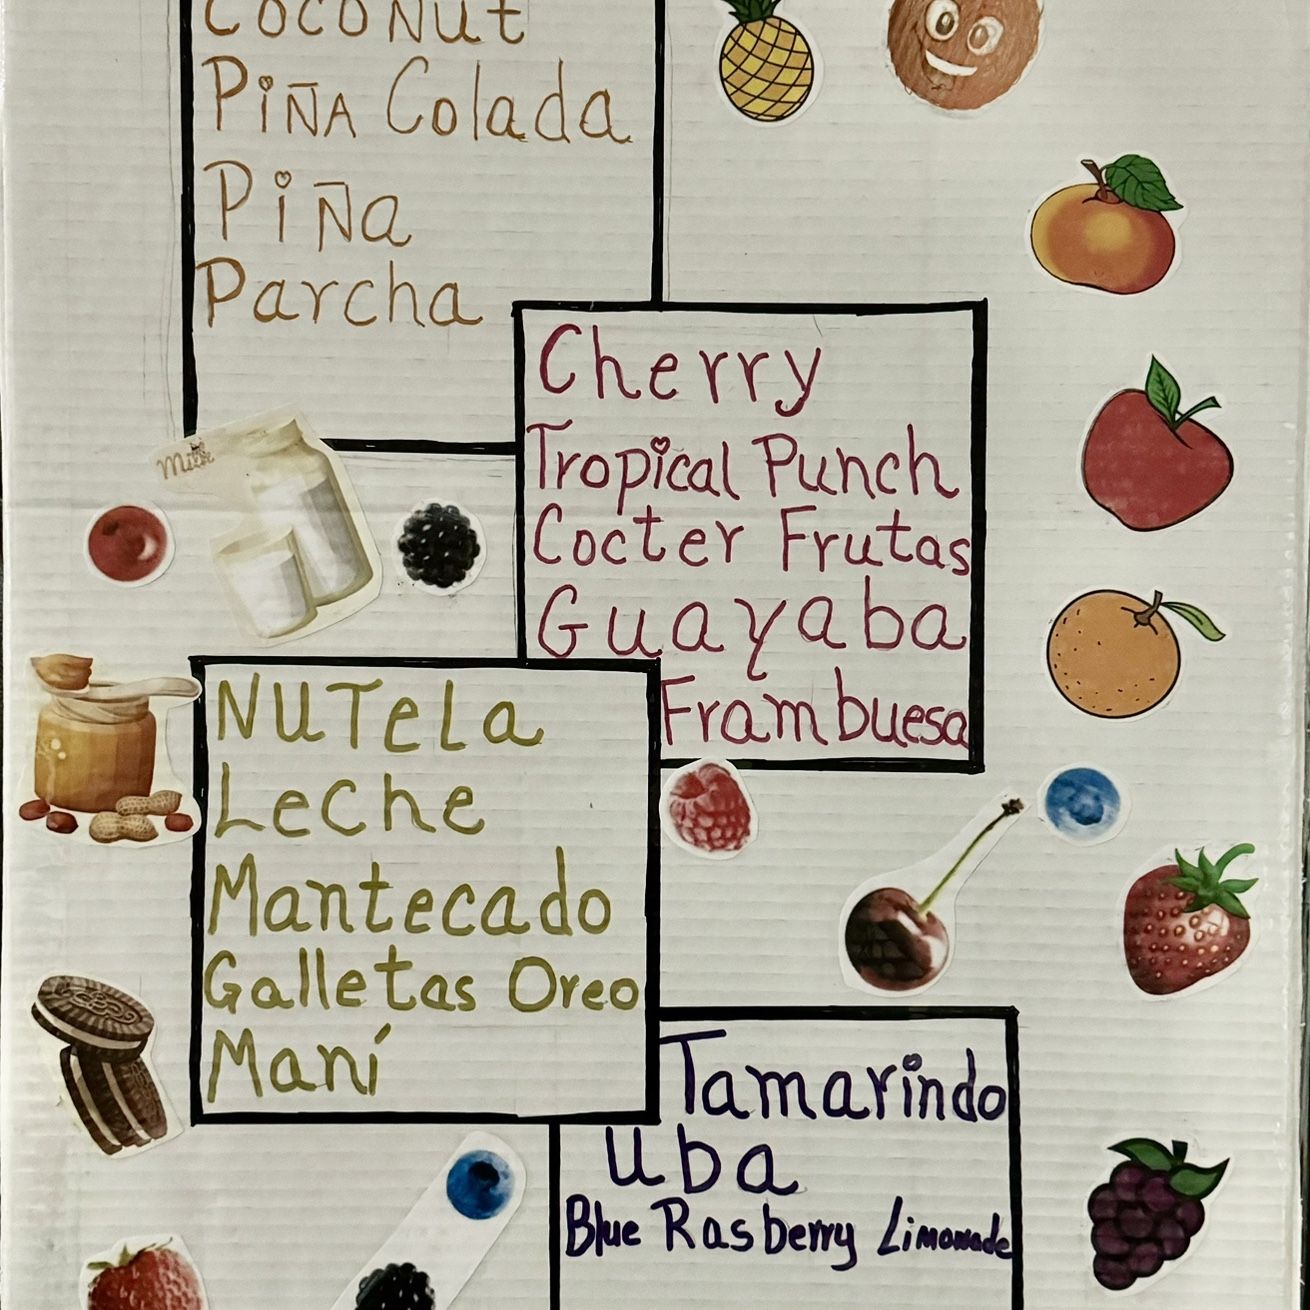 Coconut
Piña Colada
Piña
Parcha
Cherry
Tropical Punch
Cocter Frutas
Guayaba
Frambuesa
Milk
NUTela
Leche
Mantecado
Galletas Oreo
Maní
Tamarindo
Uba
Blue Rasberry Limonade